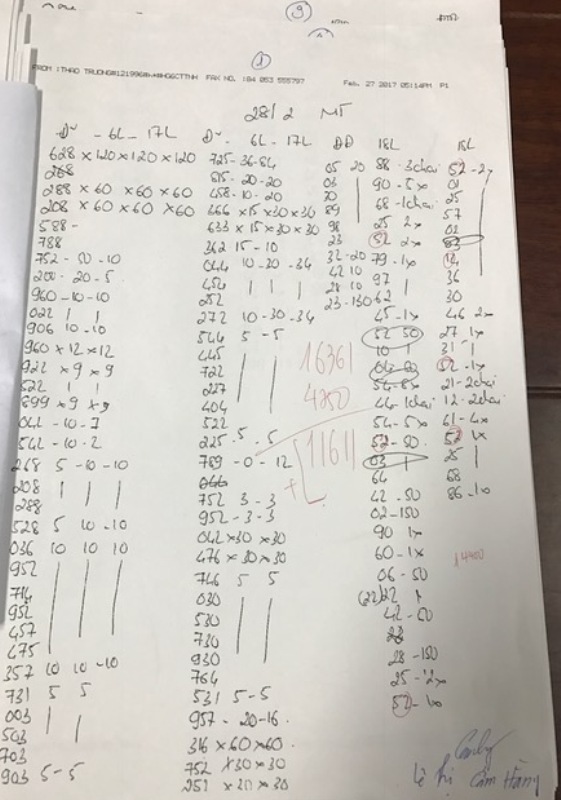 9
1
FROM : THAO TRUONG#121996#H*#HGGCTTNH FAX NO. :84 053 555797 Feb. 27 2017 05:14PM P1
28/2 MT
- 6L - 17L
628 x 120 x 120 x 120
268
288 x 60 x 60 x 60
208 x 60 x 60 x 60
588 -
788
752 - 50 - 10
200 - 20 - 5
960 - 10 - 10
022 | |
906 10 - 10
960 x 12 x 12
922 x 9 x 9
522 | |
899 x 9 x 9
042 - 10 - 7
542 - 10 - 2
268 5 - 10 - 10
208 | | |
288
528 5 10 - 10
036 10 10 10
952
714
952
457
475
357 10 10 - 10
731 5 5
003 | |
503
703
903 5 - 5
6L - 17L
725 - 36 - 84
815 - 20 - 20
458 - 10 - 20
366 x 15 x 30 x 30
633 x 15 x 30 x 30
362 15 - 10
044 10 - 20 - 34
452 | | |
252
272 10 - 30 - 34
544 5 - 5
445
722
227
404
522
225 - 5 - 5
789 - 0 - 12
752 3 - 3
952 - 3 - 3
042 x 30 x 30
476 x 30 x 30
746 5 5
030
530
730
930
764
531 5 - 5
957 - 20 - 16
316 x 60 x 60
752 x 30 x 30
252 x 20 x 30
DD
05 20
03
20
89
98
23
32 - 20
42 10
28 10
23 - 130
16361
4750
11611
18L
88 - 3chai
90 - 5x
68 - 1chai
25 2x
52 2x
79 - 1x
97 |
62 |
45 - 1x
52 50
10 |
54 - 8x
44 - 1chai
54 - 5x
52 - 50
03 |
64
42 - 50
02 - 150
90 1x
60 - 1x
06 - 50
(22)22
42 - 50
28 - 150
25 - 2x
18L
52 - 2x
01
25
57
02
36
30
46 2x
27 1x
31 1
52 - 1x
21 - 2chai
12 - 2chai
61 - 4x
52 1x
25 |
68
14400
Lê Thị Cẩm Hằng